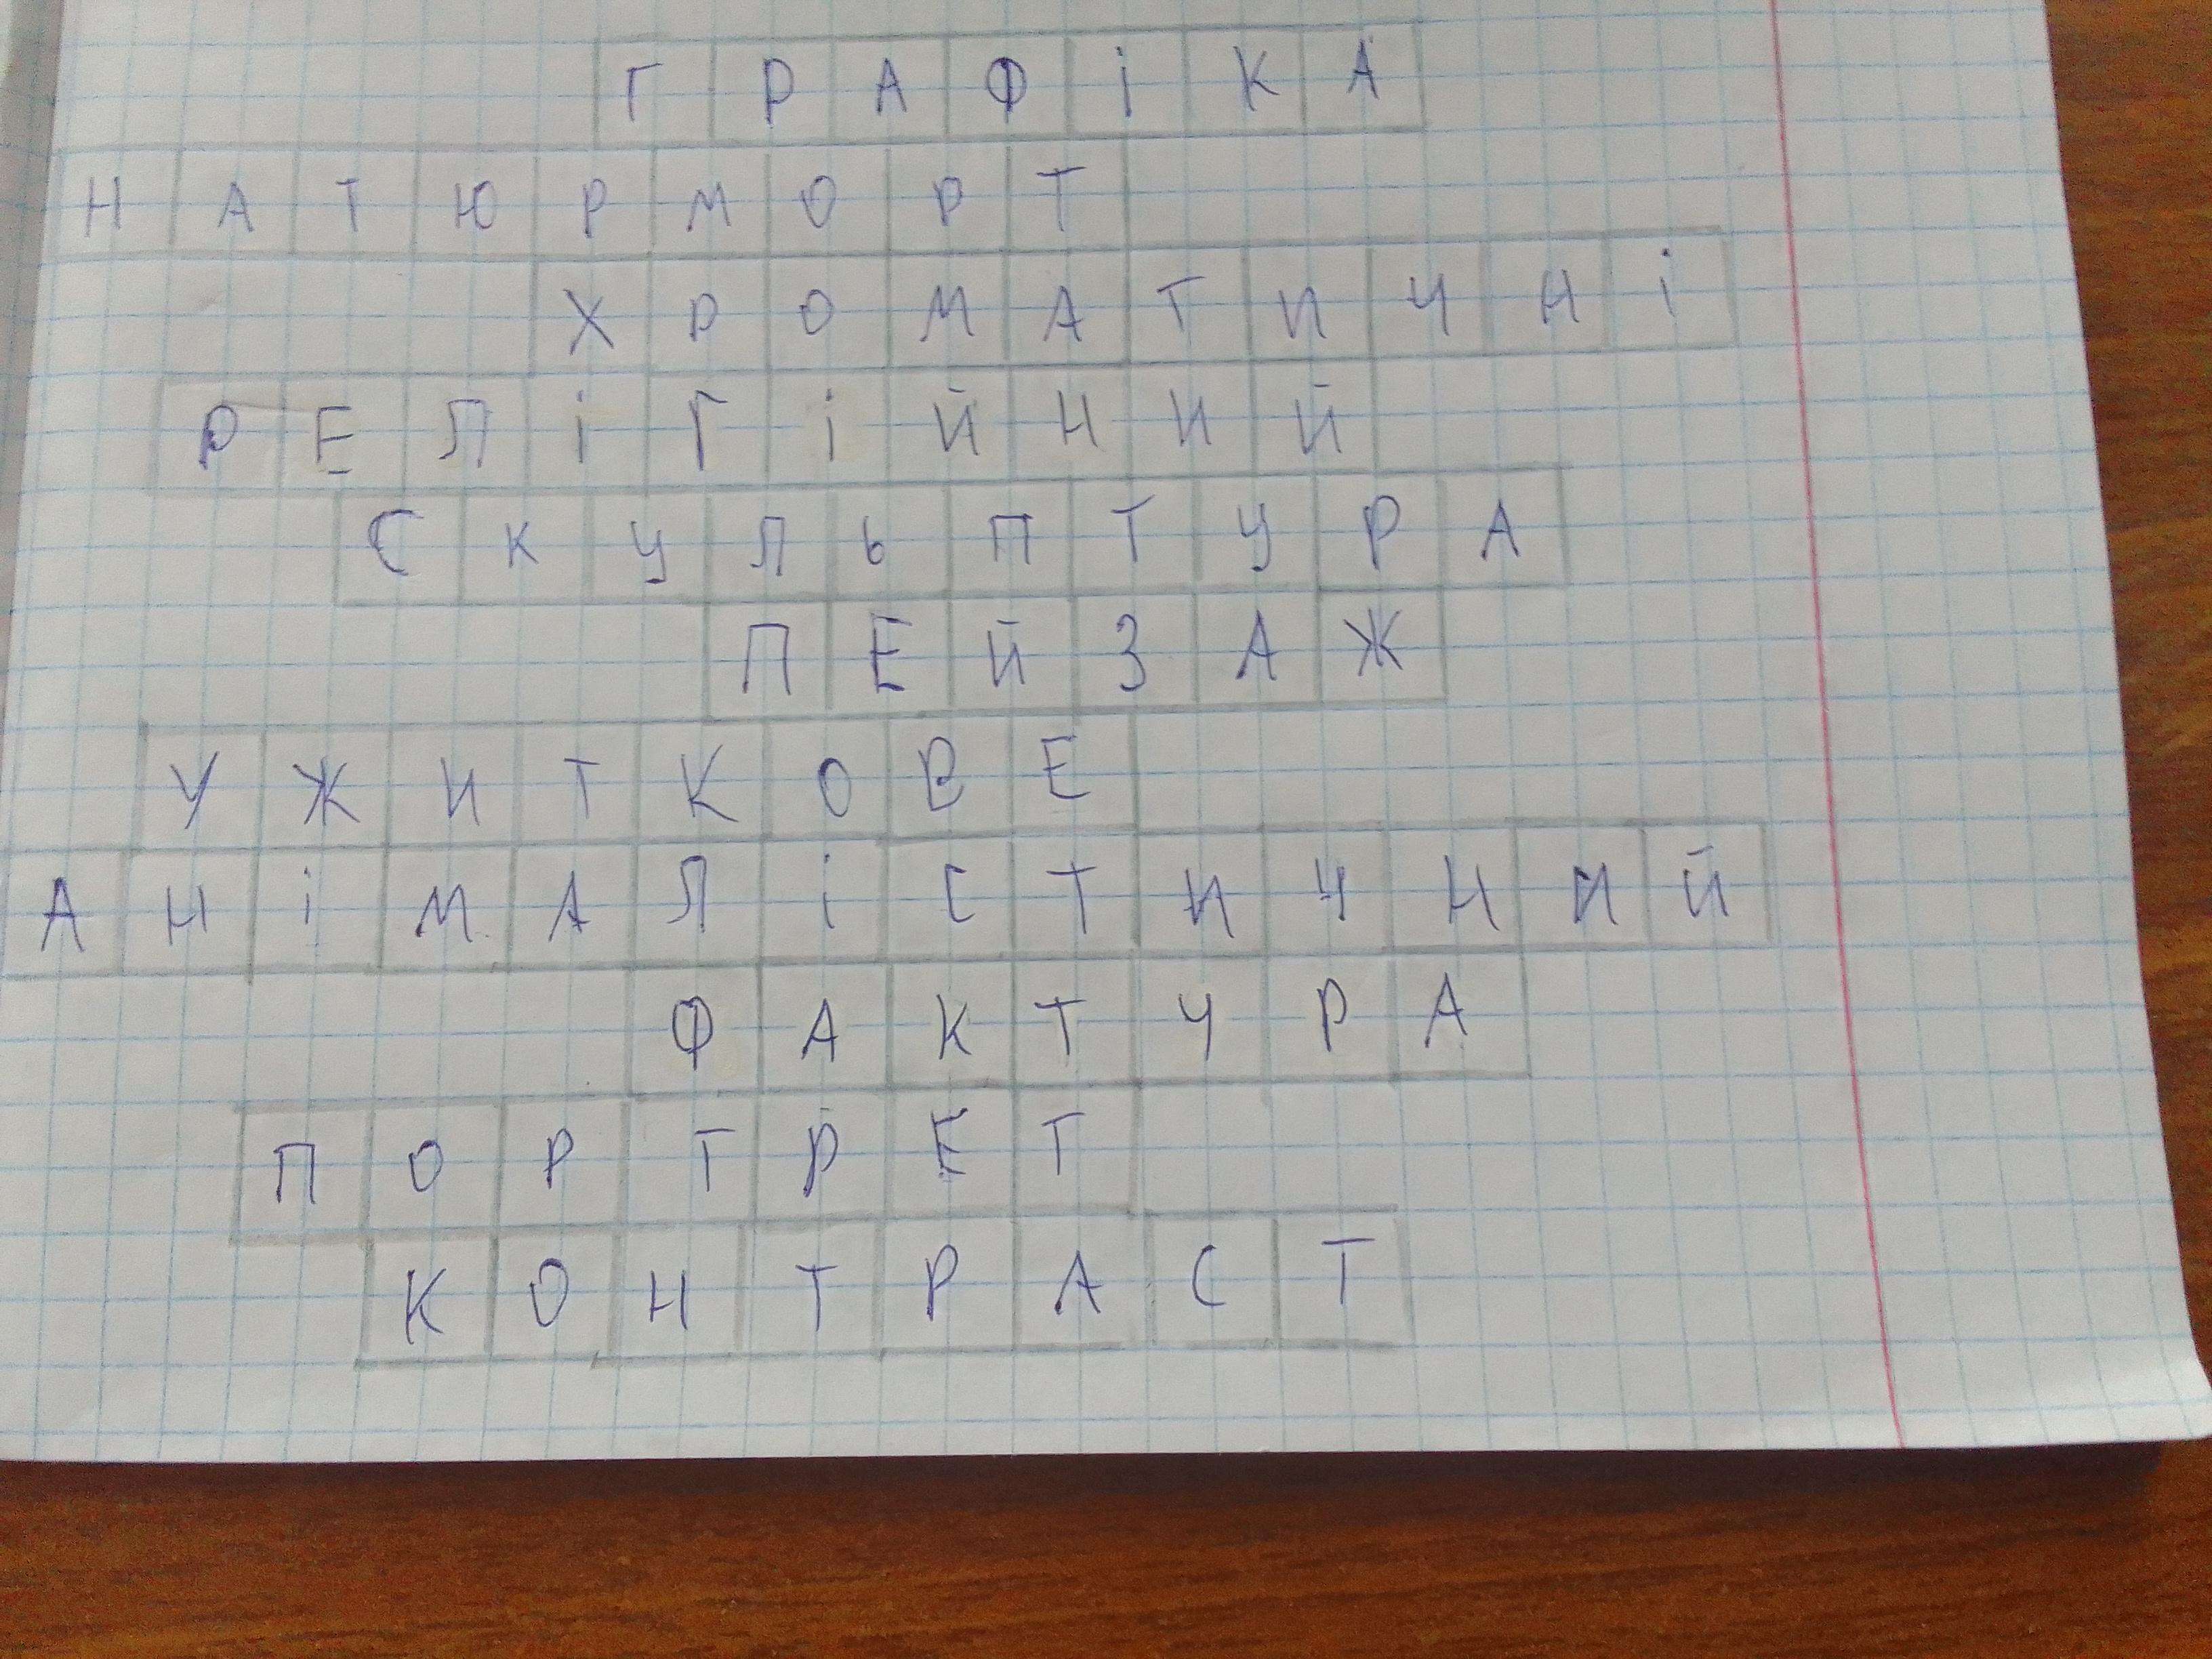 ГРАФІКА
НАТЮРМОРТ
ХРОМАТИЧНІ
РЕЛІГІЙНИЙ
СКУЛЬПТУРА
ПЕЙЗАЖ
УЖИТКОВЕ
АНІМАЛІСТИЧНИЙ
ФАКТУРА
ПОРТРЕТ
КОНТРАСТ